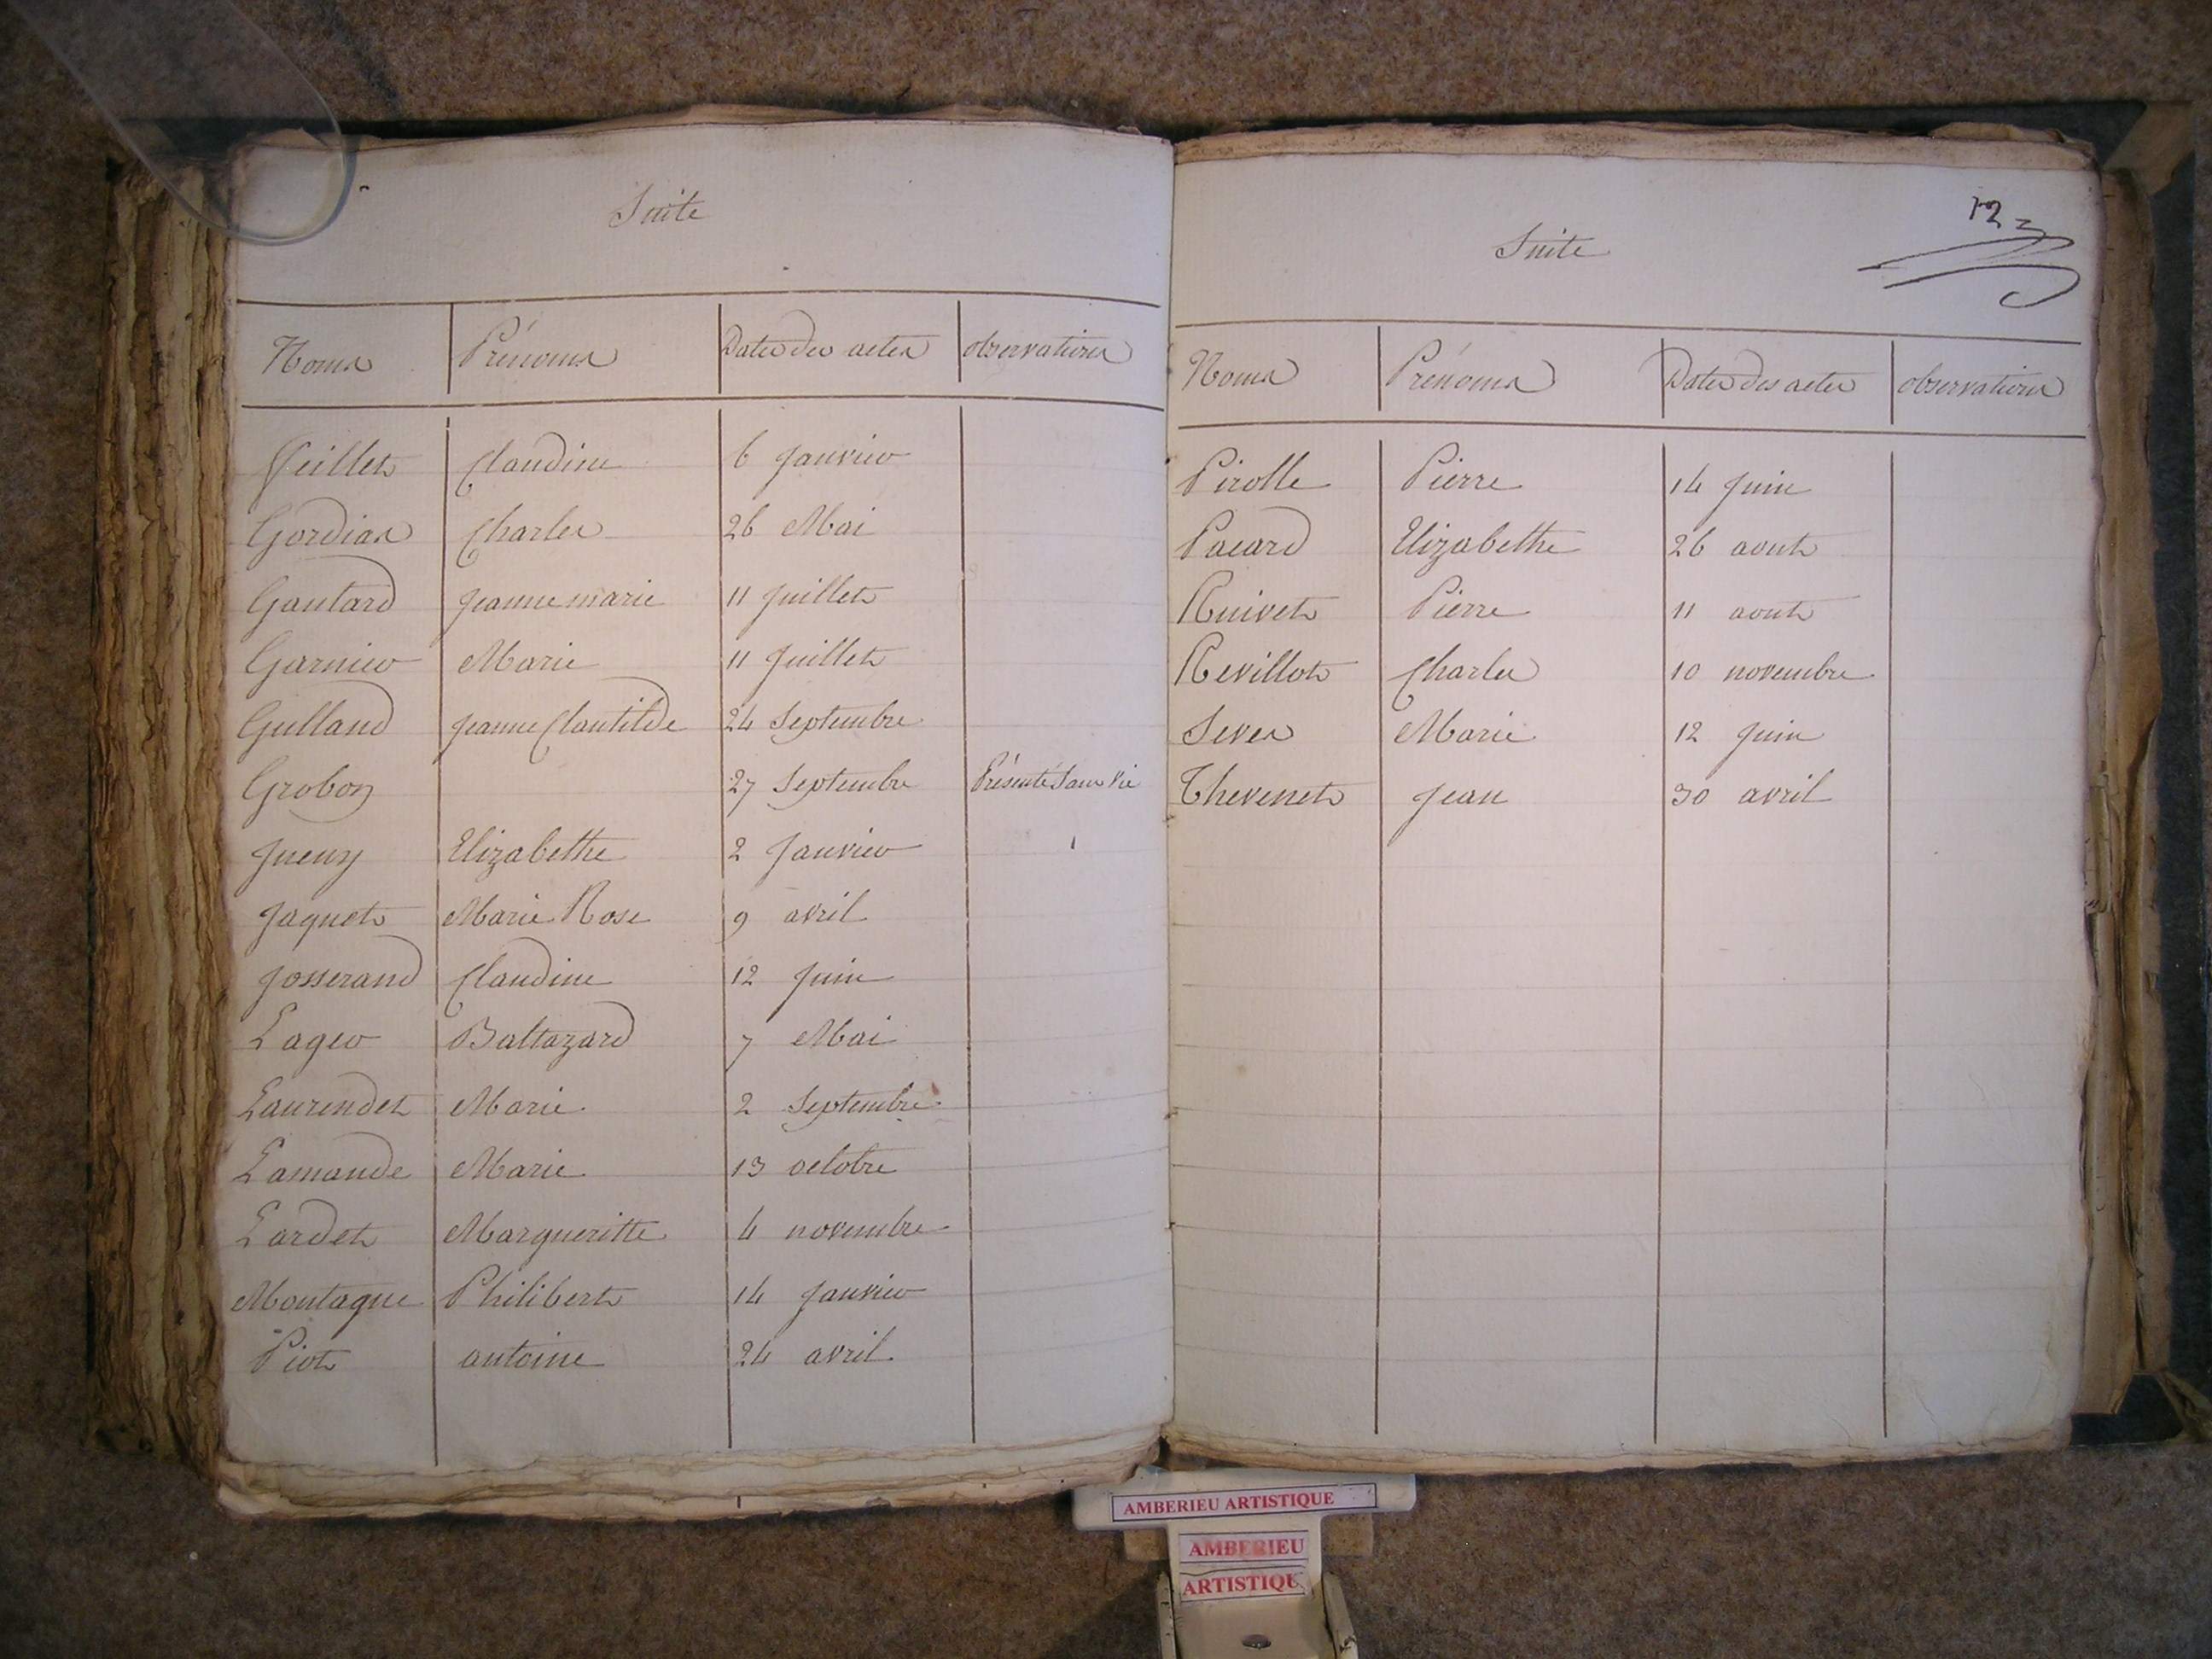 Suite
Noms Prénoms Dates des actes observations
Feillet Claudine 6 Janvier
Gordias Charles 26 Mai
Gautard Jeanne marie 11 Juillet
Garnier Marie 11 Juillet
Gulland Jeanne Clautilde 24 Septembre
Grobon 27 Septembre Présenté Sans Vie
Jueny Elizabethe 2 Janvier
Jaquet Marie Rose 9 avril
Josserand Claudine 12 Juin
Lager Baltazard 7 Mai
Laurendet Marie 2 Septembre
Lamande Marie 13 octobre
Lardet Margueritte 4 novembre
Montagne Philibert 14 Janvier
Piot antoine 24 avril
12
Suite
Noms Prénoms Dates des actes observations
Pirolle Pierre 14 Juin
Pacard Elizabethe 26 aout
Ruivet Pierre 11 aout
Revillot Charles 10 novembre
Seves Marie 12 Juin
Thevenet Jean 30 avril
AMBERIEU ARTISTIQUE
AMBERIEU
ARTISTIQUE